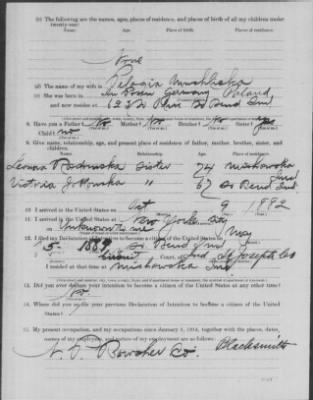 (c) The following are the names, ages, places of residence, and places of birth of all my children under
twenty-one:
Name. Age. Place of residence. Place of birth.
None
(d) The name of my wife is Pelagia
(e) She was born in Posen Germany Poland
and now resides at So Bend Ind
8. Have you a Father? No Mother? No Brother? No Sister? yes
Child? no
9. Give name, relationship, age, and present place of residence of father, mother, brother, sister, and
children.
Name. Relationship. Age. Present place of residence.
Sister 74 Mishawaka Ind
Victoria " 67 So Bend Ind
10. I arrived in the United States on Oct 9 1882
11. I arrived in the United States at New York City
on Unknown to me
12. I filed my Declaration of Intention to become a citizen of the United States on May
5 1884 So Bend Ind
Circuit Court, of Ind St Joseph Co
I resided at that time at Mishawaka Ind
13. Did you ever disclaim your intention to become a citizen of the United States at any other time?
No.
14. Where did you file your previous Declaration of Intention to become a citizen of the United
States?
15. My present occupation, and my occupations since January 1, 1914, together with the places, dates,
names of my employers, and nature of my employment are as follows:
N. P. Bowsher Co. Blacksmith